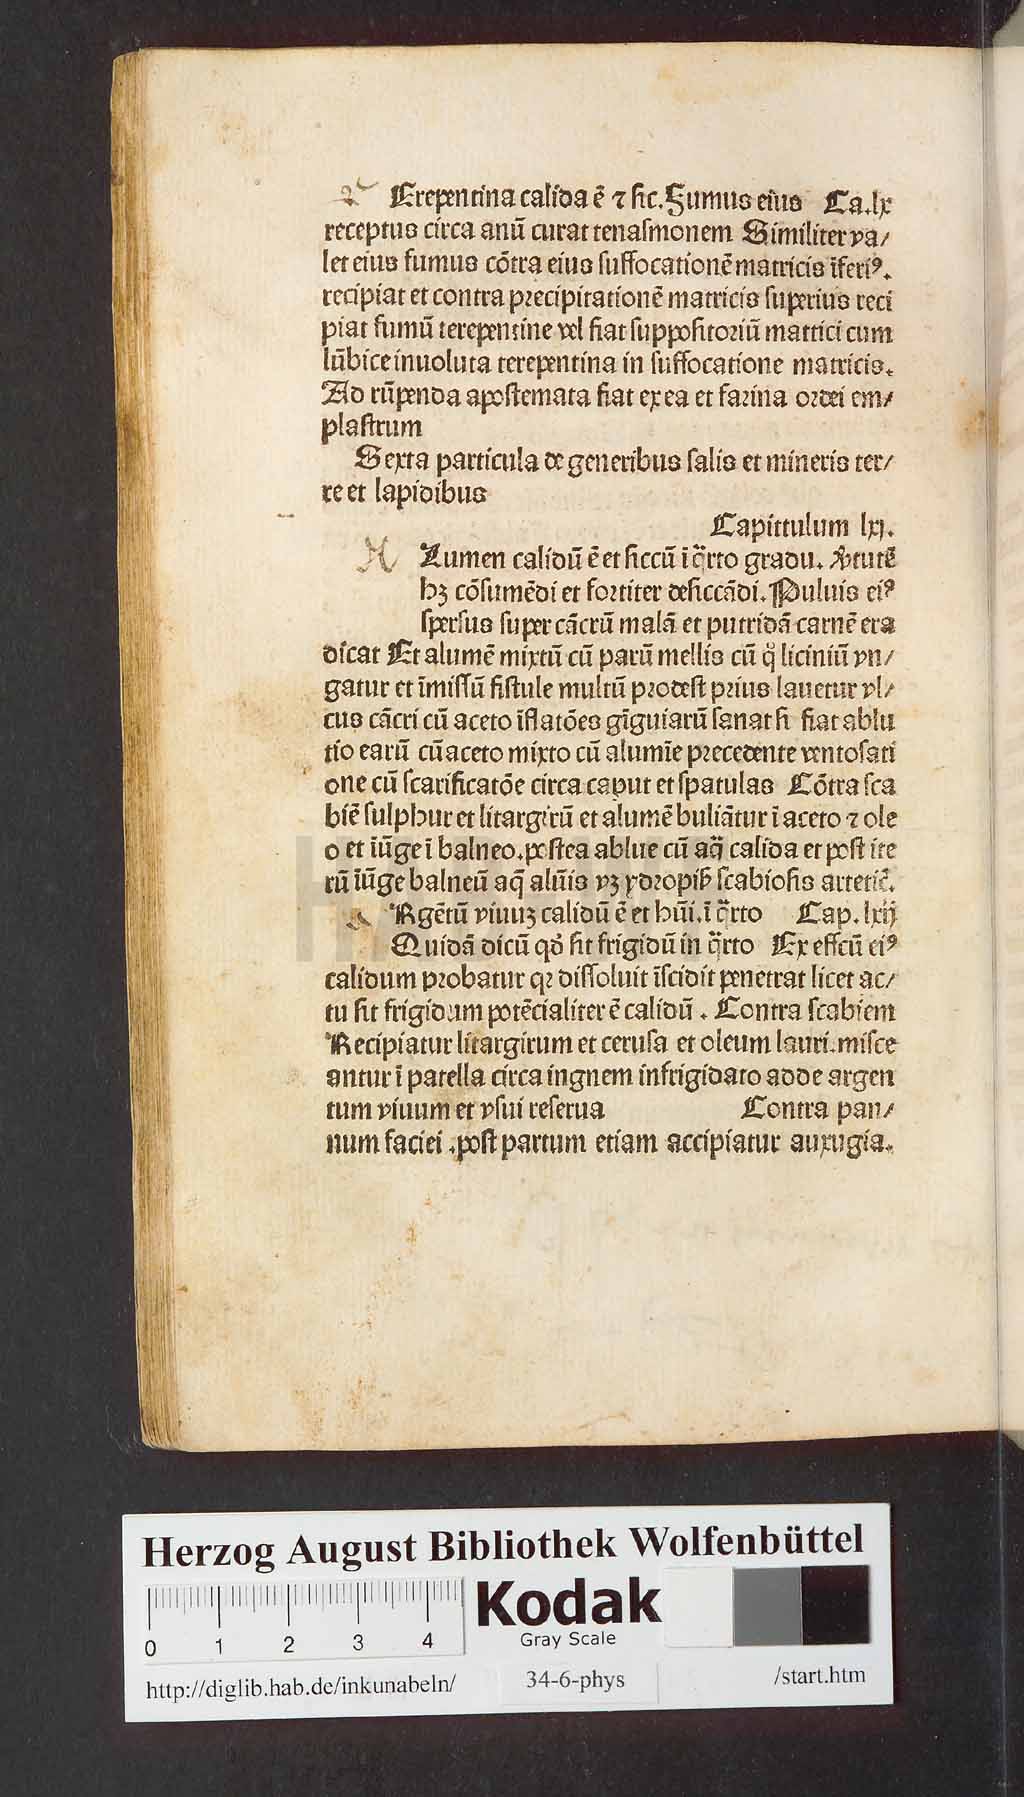 Erepentina calida ē ⁊ sic. Fumus eius Ca.lx
receptus circa anū curat tenasmonem Similiter va/
let eius fumus cōtra eius suffocationē matricis īferiꝰ.
recipiat et contra precipitationē matricis superius reci
piat fumū terepentine vel fiat suppositoriū matrici cum
lūbice inuoluta terepentina in suffocatione matricis.
Ad rūpenda apostemata fiat ex ea et farina ordei em/
plastrum
Sexta particula de generibus salis et mineris ter/
re et lapidibus
Capittulum lxj.
Lumen calidū ē et siccū ī q̄rto gradu. v̄tutē
hꝫ cōsumēdi et fortiter desiccādi. Puluis eiꝰ
spersus super cācrū malā et putridā carnē era
dicat Et alumē mixtū cū parū mellis cū q̊ liciniū vn/
gatur et īmissū fistule multū prodest prius lauetur vl/
cus cācri cū aceto īflatōes gīguiarū sanat si fiat ablu
tio earū cū aceto mixto cū alumīe precedente ventosati
one cū scarificatōe circa caput et spatulas Cōtra sca
biē sulphur et litargirū et alumē buliātur ī aceto ⁊ ole
o et īūge ī balneo.postea ablue cū aq̄ calida et post ite
rū īūge balneū aq̄ alūis vꝫ ydropiꝭ scabiosis artetic̄.
Rgētū viuuꝫ calidū ē et hūi.ī q̄rto Cap. lxij
Quidā dicū qd̛ sit frigidū in q̄rto Ex effcū eiꝰ
calidum probatur qꝛ dissoluit īscidit penetrat licet ac/
tu sit frigidum potēcialiter ē calidū . Contra scabiem
Recipiatur litargirum et cerusa et oleum lauri.misce
antur ī patella circa ingnem infrigidato adde argen
tum viuum et vsui reserua Contra pan/
num faciei .post partum etiam accipiatur auxugia.
Herzog August Bibliothek Wolfenbüttel
Kodak
Gray Scale
0 1 2 3 4
http://diglib.hab.de/inkunabeln/ 34-6-phys /start.htm